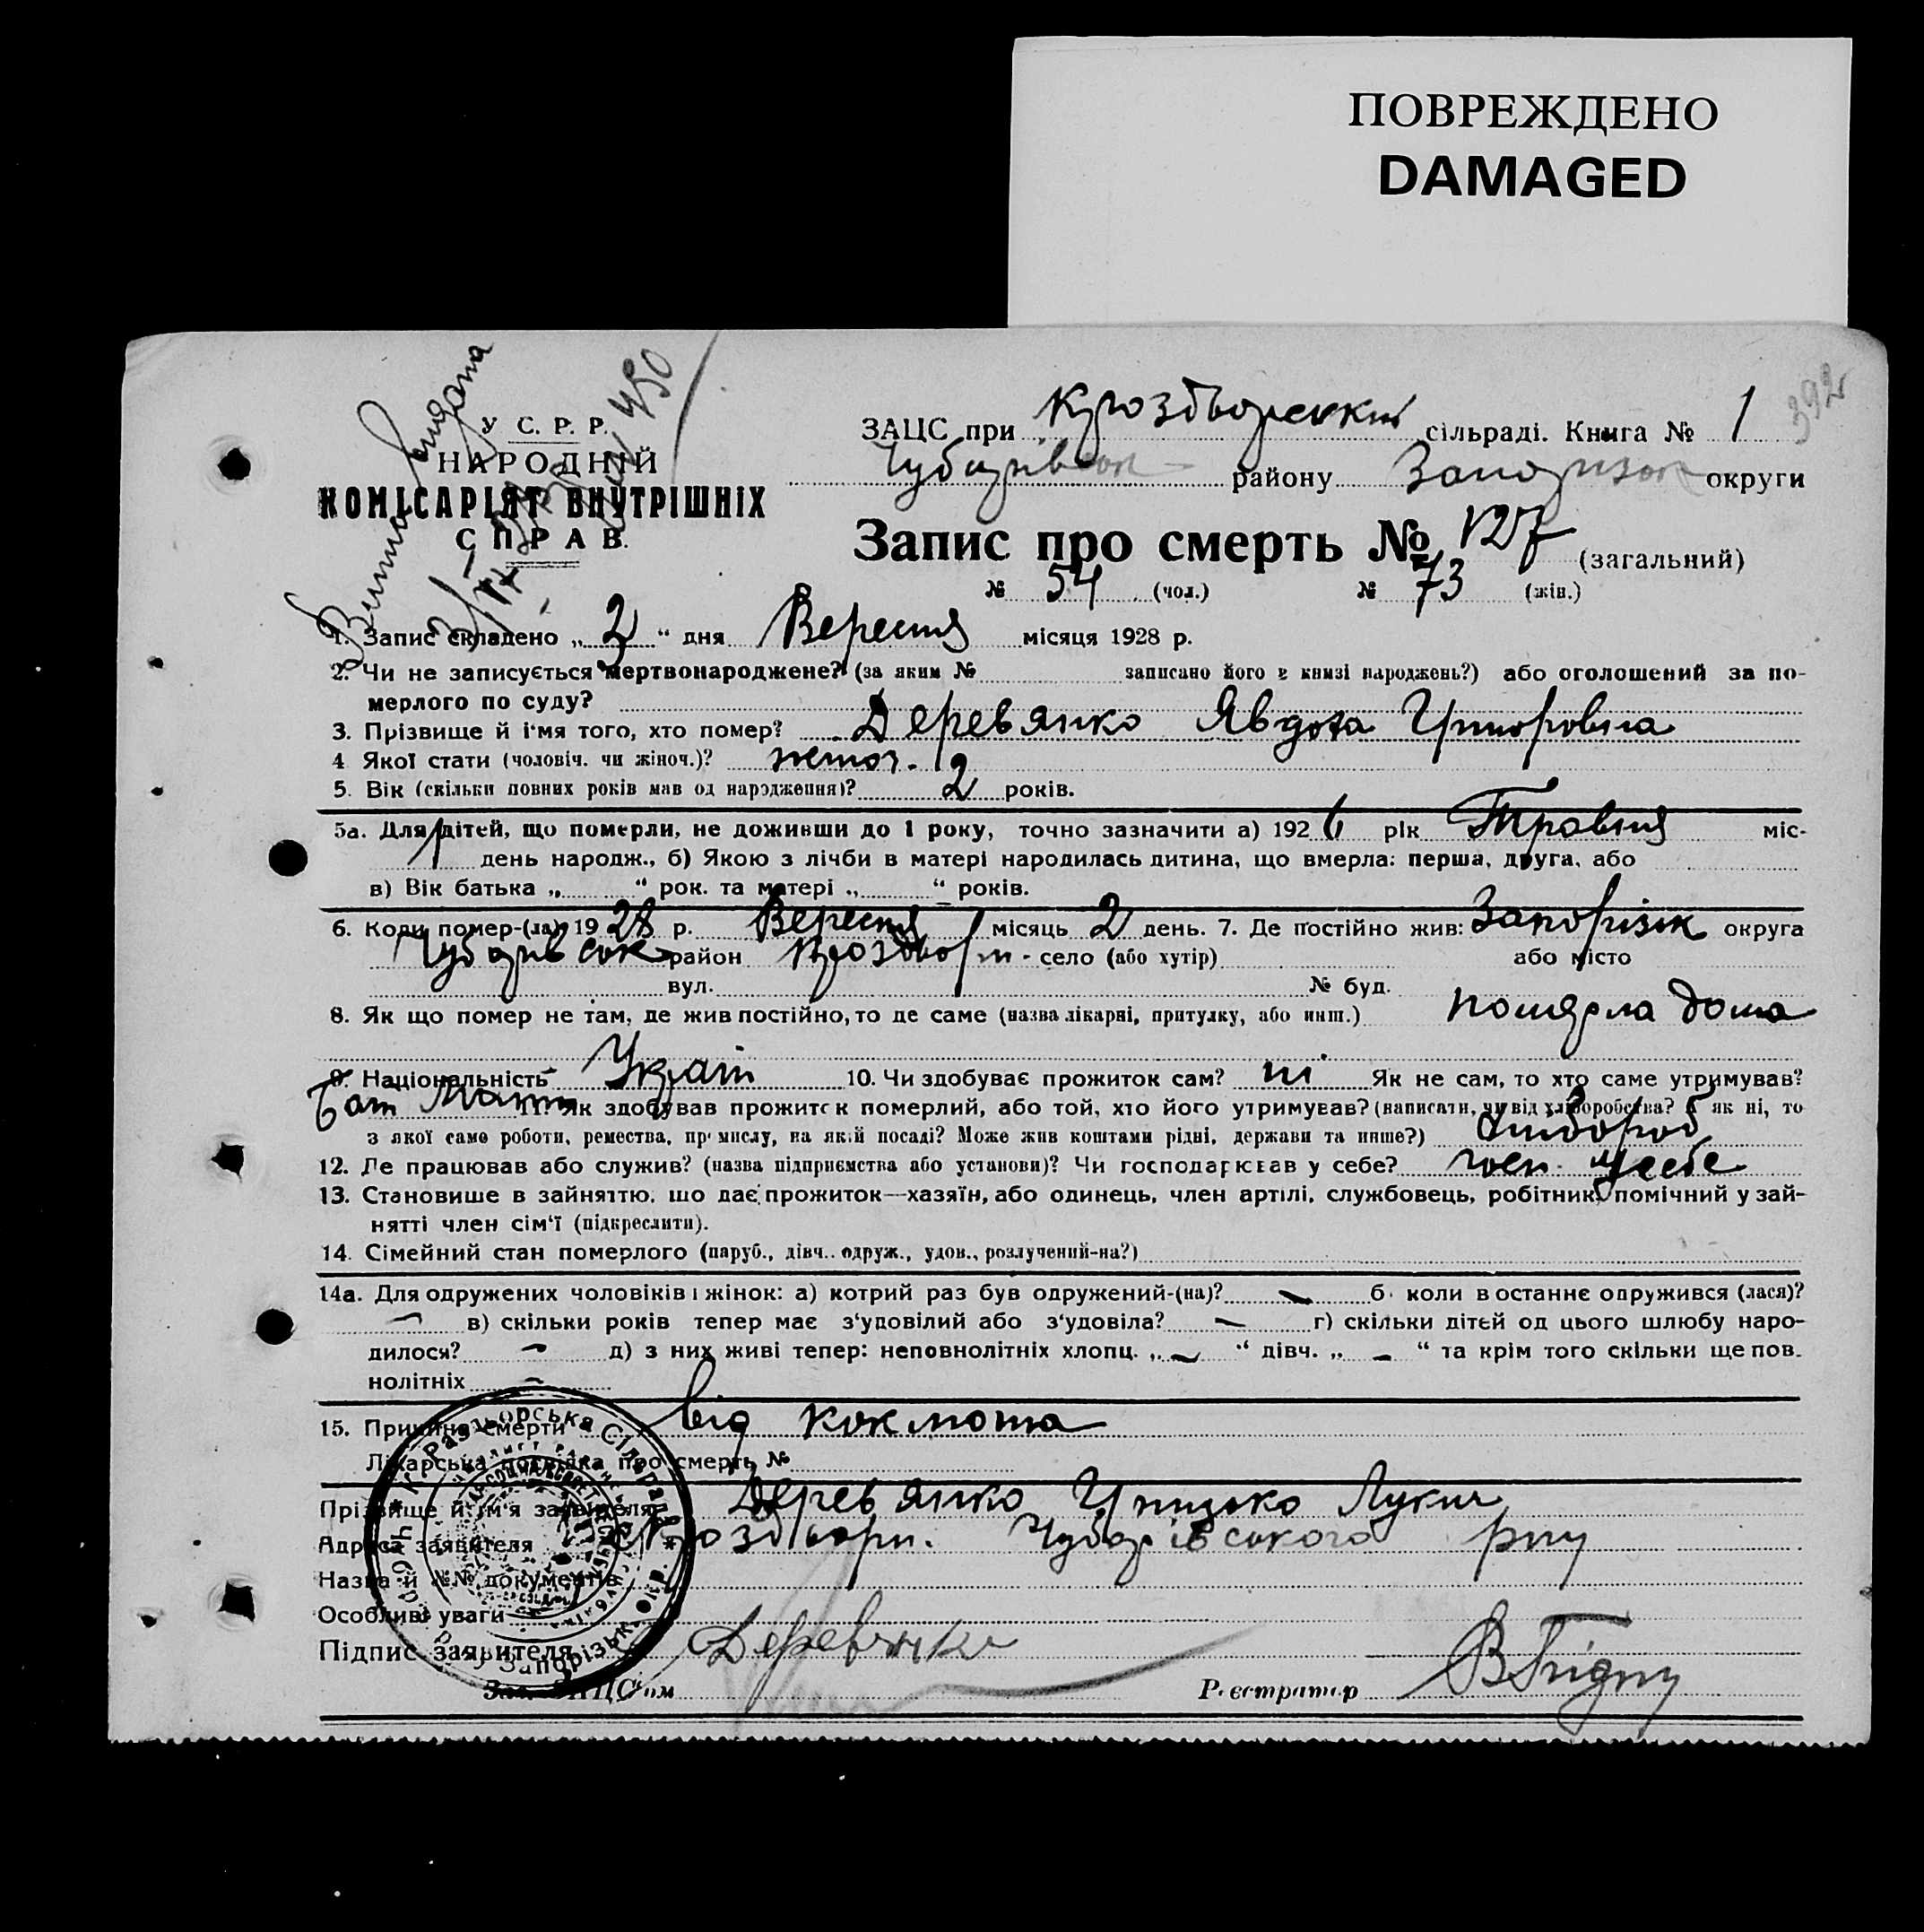 ПОВРЕЖДЕНО
DAMAGED
392
У С. Р. Р.
НАРОДНІЙ
КОМІСАРІЯТ ВНУТРІШНІХ
СПРАВ.
ЗАЦС при сільраді. Книга № 1
району округи
Запис про смерть № 127 (загальний)
№ 54 (чол.) № 73 (жін.)
1. Запис складено „ 2 “ дня Вересня місяця 1928 р.
2. Чи не записується мертвонароджене? (за яким № записано його в книзі народжень?) або оголошений за по-
мерлого по суду?
3. Прізвище й ім'я того, хто помер? Деревянко Явдоха
4 Якої стати (чоловіч. чи жіноч.)?
5. Вік (скільки повних років мав од народження)? 2 років.
5а. Для дітей, що померли, не доживши до 1 року, точно зазначити а) 192 6 рік Травня міс-
1 день народж., б) Якою з лічби в матері народилась дитина, що вмерла: перша, друга, або
в) Вік батька „ “ рок. та матері „ “ років.
6. Коли помер-(ла) 19 28 р. Вересня місяць 2 день. 7. Де постійно жив: Запорізьк округа
район село (або хутір) або місто
вул. № буд.
8. Як що помер не там, де жив постійно, то де саме (назва лікарні, притулку, або инш.) дома
9. Національність Україн 10. Чи здобуває прожиток сам? ні Як не сам, то хто саме утримував?
11. Як здобував прожиток померлий, або той, хто його утримував? (написати, чи від хліборобства? А як ні, то
з якої саме роботи, ремества, промислу, на якій посаді? Може жив коштами рідні, держави та инше?) хлібороб
12. Де працював або служив? (назва підприємства або установи)? Чи господарював у себе? у себе
13. Становище в зайняттю, що дає прожиток—хазяїн, або одинець, член артілі, службовець, робітник, помічний у зай-
нятті член сім'ї (підкреслити).
14. Сімейний стан померлого (паруб., дівч.. одруж., удов., розлучений-на?)
14а. Для одружених чоловіків і жінок: а) котрий раз був одружений-(на)? — б. коли востаннє одружився (лася)?
— в) скільки років тепер має з'удовілий або з'удовіла? — г) скільки дітей од цього шлюбу наро-
дилося? — д) з них живі тепер: неповнолітніх хлопц. „ — “ дівч. „ — “ та крім того скільки ще пов.
нолітніх —
15. Причина смерти від коклюша
Лікарська посвідка про смерть №
Прізвище й ім'я заявителя Деревянко Грицько Лукич
Адреса заявителя Чубарівського р-ну
Назва й №№ документів
Особливі уваги
Підпис заявителя Деревянко
Зав. ЗАЦС'ом Реєстратор